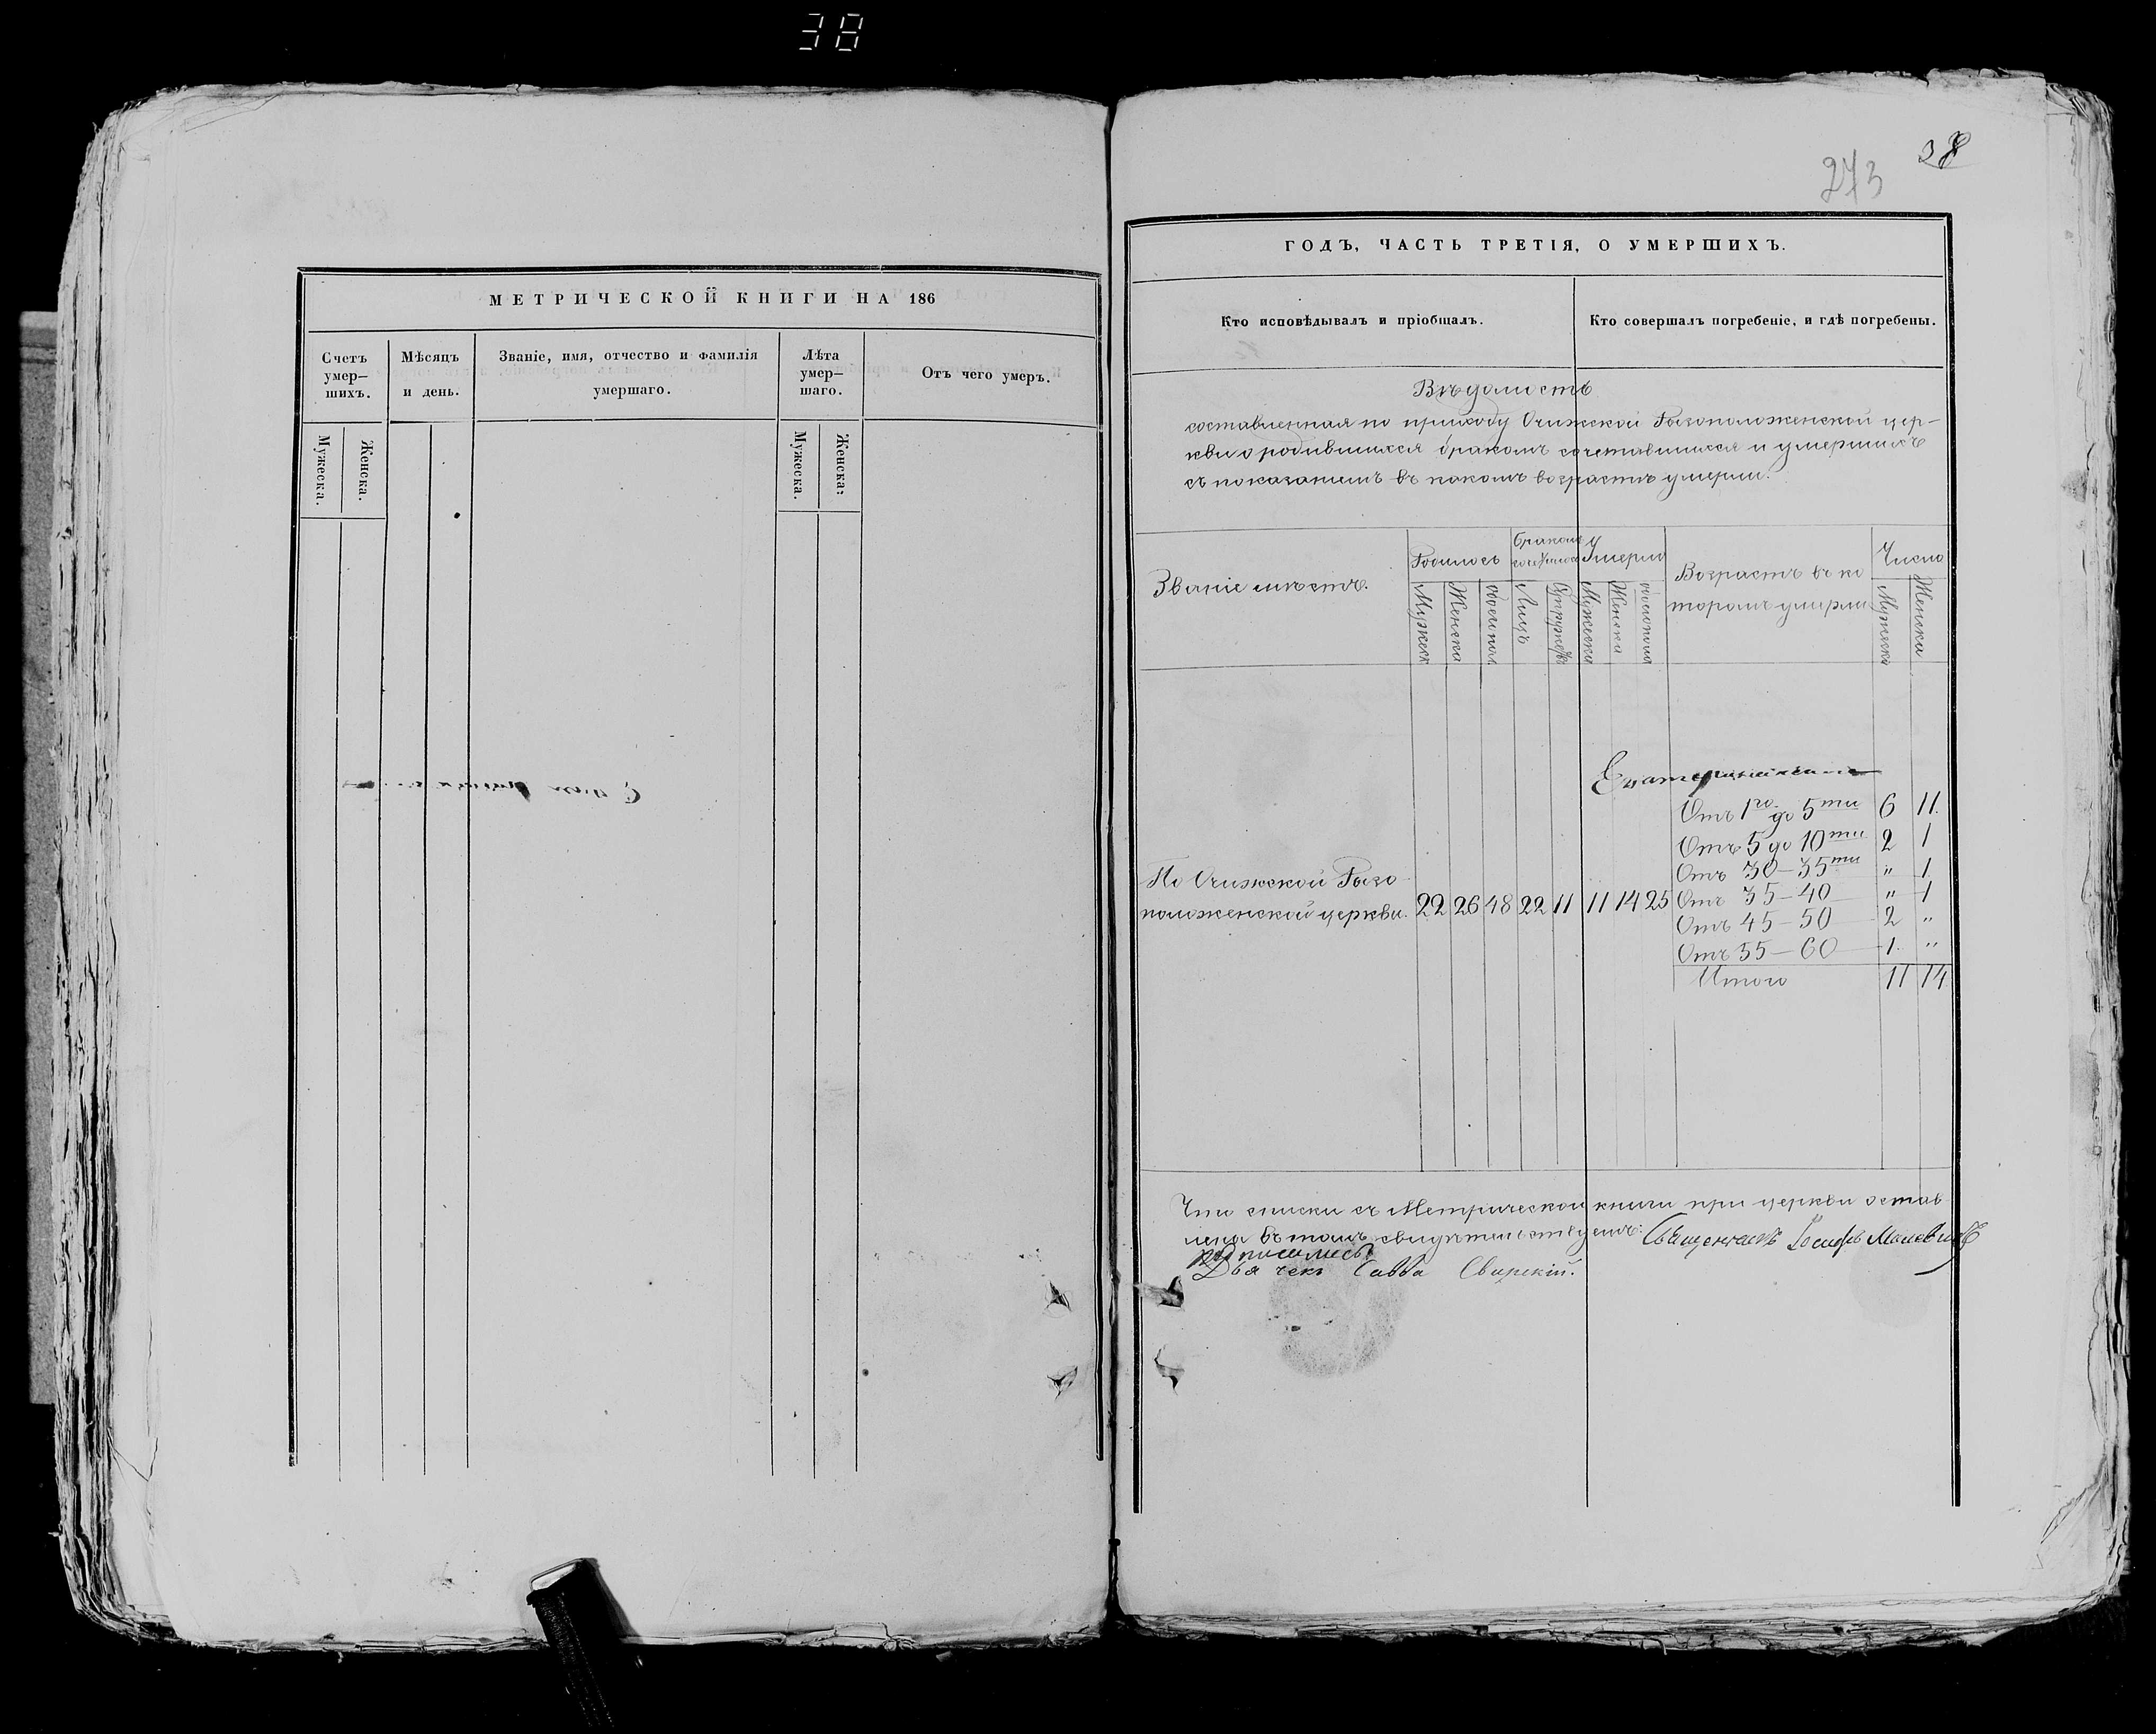 38
МЕТРИЧЕСКОЙ КНИГИ НА 186
Счетъ умер–шихъ.
Мѣсяцъ и день.
Званіе, имя, отчество и фамилія умершаго.
Лѣта умер–шаго.
Отъ чего умеръ.
Мужеска.
Женска.
Мужеска.
Женска:
273
38
ГОДЪ, ЧАСТЬ ТРЕТІЯ, О УМЕРШИХЪ.
Кто исповѣдывалъ и пріобщалъ.
Кто совершалъ погребеніе, и гдѣ погребены.
Вѣдомость
составленная по приходу Очижской Ризоположенской цер-
кви о родившихся бракомъ сочетавшихся и умершихъ
съ показаніемъ въ какомъ возрастѣ умерли.
Званіе мѣстъ.
Родилось
Бракомъ
Умерло
Возрастъ въ ко
торомъ умерли
Число
Мужеск
Женска
Обоего пола
Лицъ
Супружествъ
Мужеска
Женска
Обоего пола
Мужеска
Женска
Отъ 1го до 5ти 6 11.
Отъ 5 до 10ти 2 1
Отъ 30–35ти " 1
По Очижской Ризо
Отъ 35–40 " 1
положенской церкви. 22 26 48 22 11 11 14 25
Отъ 45–50 2 "
Отъ 55–60 1. "
Итого 11 14
Что списки съ Метрической книги при церкви остав
лена въ томъ свидѣтельствуемъ: Священникъ Іосифъ
подписались
Дьячекъ Савва Свирскій.